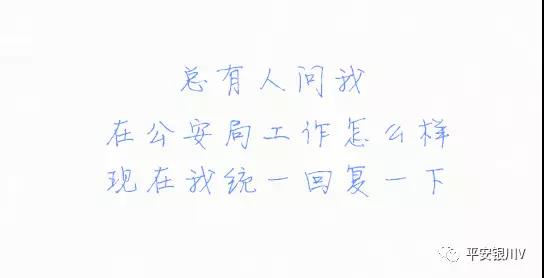 总有人问我
在公安局工作怎么样
现在我统一回复一下
平安银川V